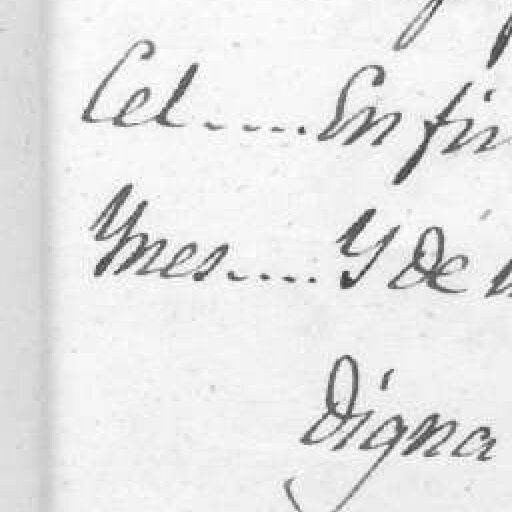 Cel..... En fin
Ynes..... Y de
digna